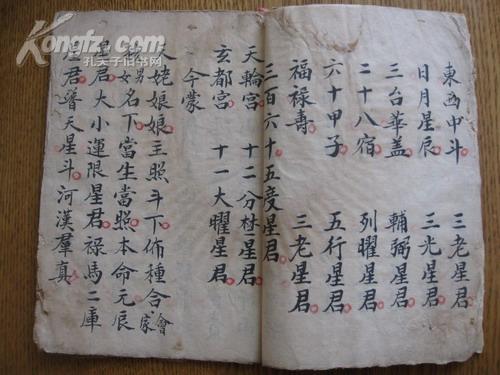 東西中斗 三老星君
日月星辰 三光星君
三台華盖 輔弼星君
二十八宿 列曜星君
六十甲子 五行星君
福禄壽 三老星君
三百六十五度星君
天輪宮 十二分 星君
玄都宮 十一大曜星君
今蒙
姥娘娘主照斗下佈種合會家
男女名下當生當照本命元辰
星君大小運限星君禄馬二庫
星君普天星斗河漢羣真
Kongfz.com
孔夫子旧书网